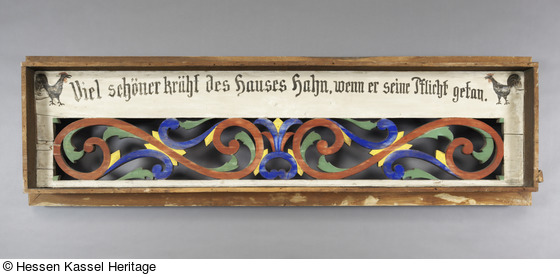 Viel schöner kräht des Hauses Hahn, wenn er seine Pflicht getan.
© Hessen Kassel Heritage